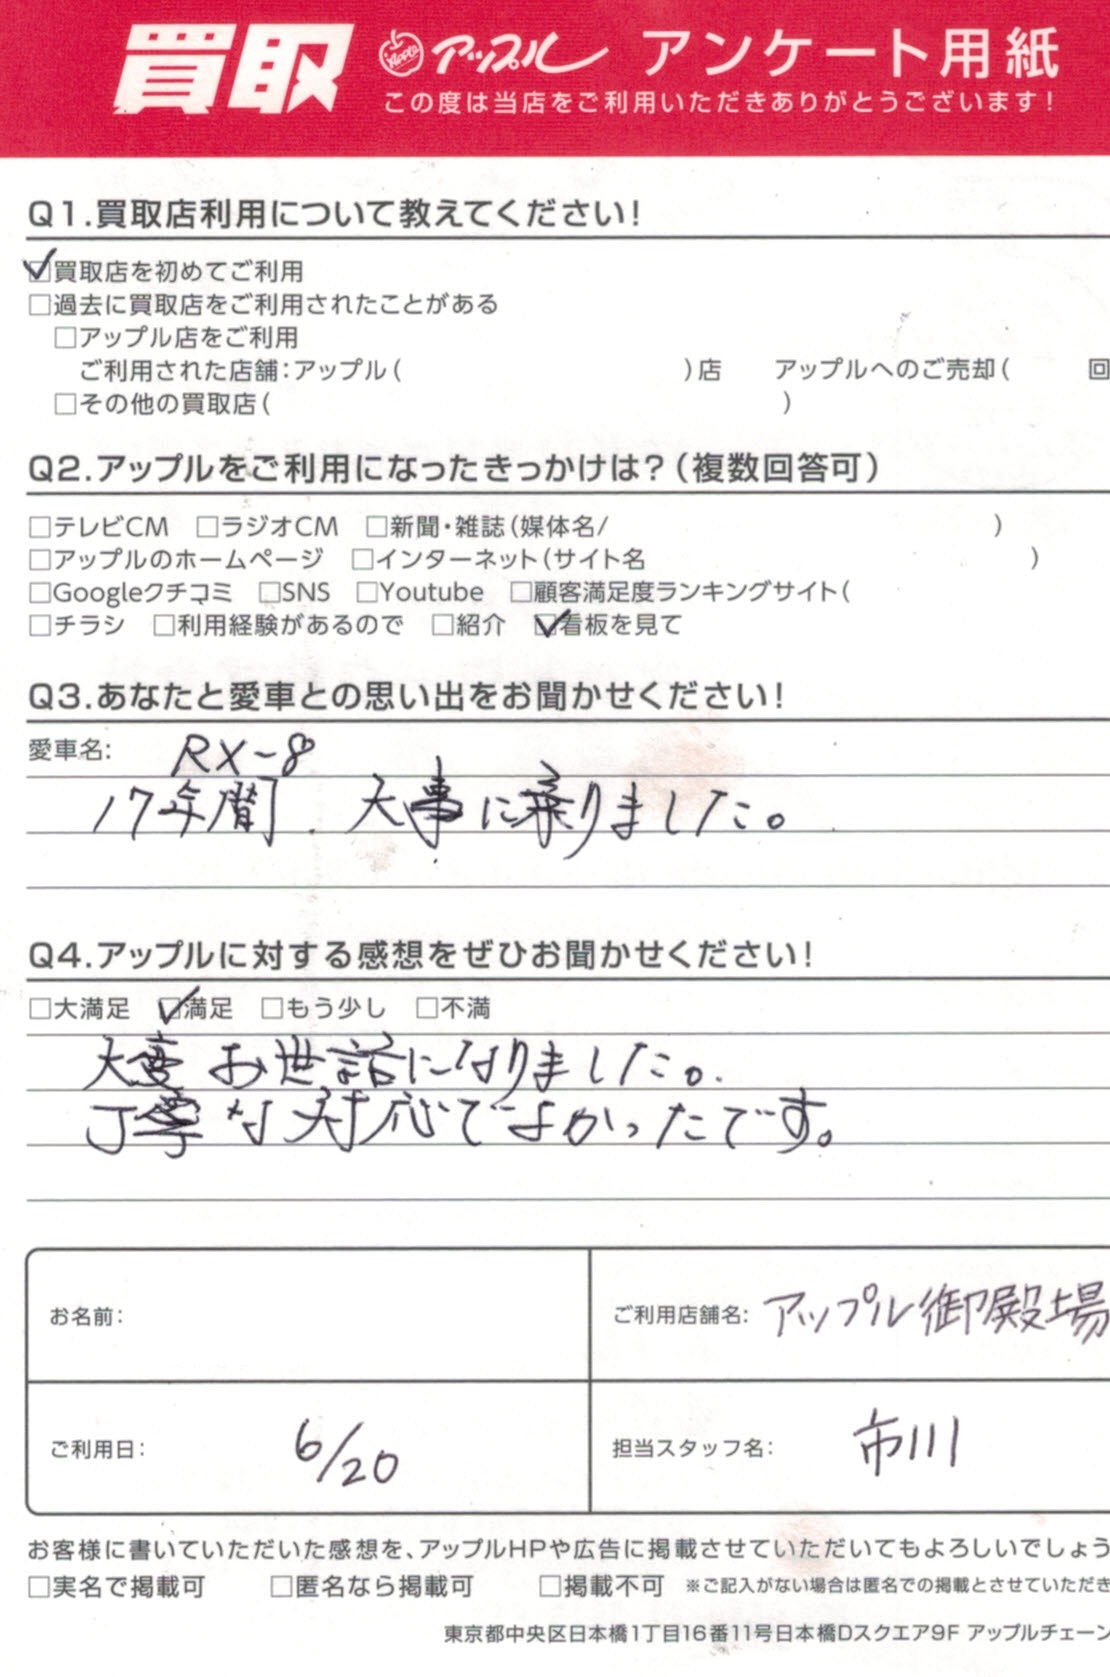 買取 Apple アップル アンケート用紙
この度は当店をご利用いただきありがとうございます!
Q1.買取店利用について教えてください!
☑買取店を初めてご利用
□過去に買取店をご利用されたことがある
□アップル店をご利用
ご利用された店舗:アップル( )店 アップルへのご売却( 回
□その他の買取店( )
Q2.アップルをご利用になったきっかけは?(複数回答可)
□テレビCM □ラジオCM □新聞・雑誌(媒体名/ )
□アップルのホームページ □インターネット(サイト名 )
□Googleクチコミ □SNS □Youtube □顧客満足度ランキングサイト(
□チラシ □利用経験があるので □紹介 ☑看板を見て
Q3.あなたと愛車との思い出をお聞かせください!
愛車名: RX-8
17年間、大事に乗りました。
Q4.アップルに対する感想をぜひお聞かせください!
□大満足 ☑満足 □もう少し □不満
大変お世話になりました。
丁寧な対応でよかったです。
お名前:
ご利用店舗名: アップル御殿場
ご利用日: 6/20
担当スタッフ名: 市川
お客様に書いていただいた感想を、アップルHPや広告に掲載させていただいてもよろしいでしょう
□実名で掲載可 □匿名なら掲載可 □掲載不可 ※ご記入がない場合は匿名での掲載とさせていただき
東京都中央区日本橋1丁目16番11号日本橋Dスクエア9F アップルチェーン